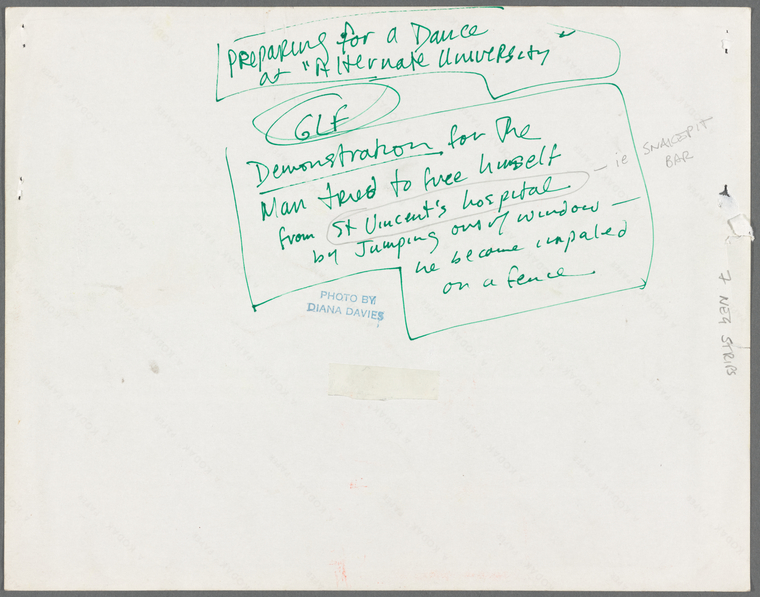 Preparing for a Dance
at "Alternate University"
GLF
Demonstration for the
Man tried to free himself
from St Vincent's hospital
by Jumping out of window —
he became impaled
on a fence
— ie SNAKEPIT
BAR
PHOTO BY
DIANA DAVIES
7 NEG STRIPS